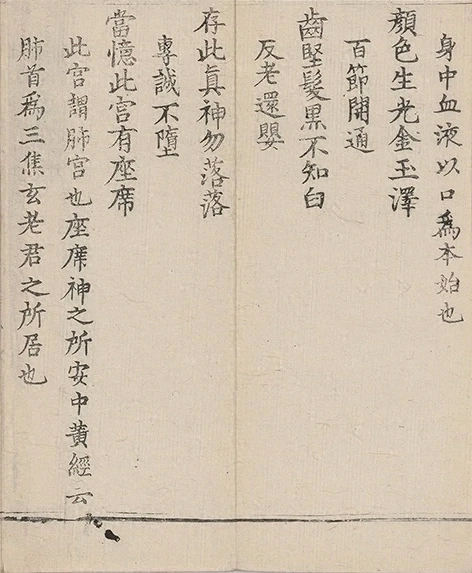 身中血液以口為本始也
顏色生光金玉澤
百節開通
齒堅髮黑不知白
反老還嬰
存此真神勿落落
專誠不墮
當憶此宮有座席
此宮謂肺宮也座席神之所安中黃經云
肺首為三焦玄老君之所居也